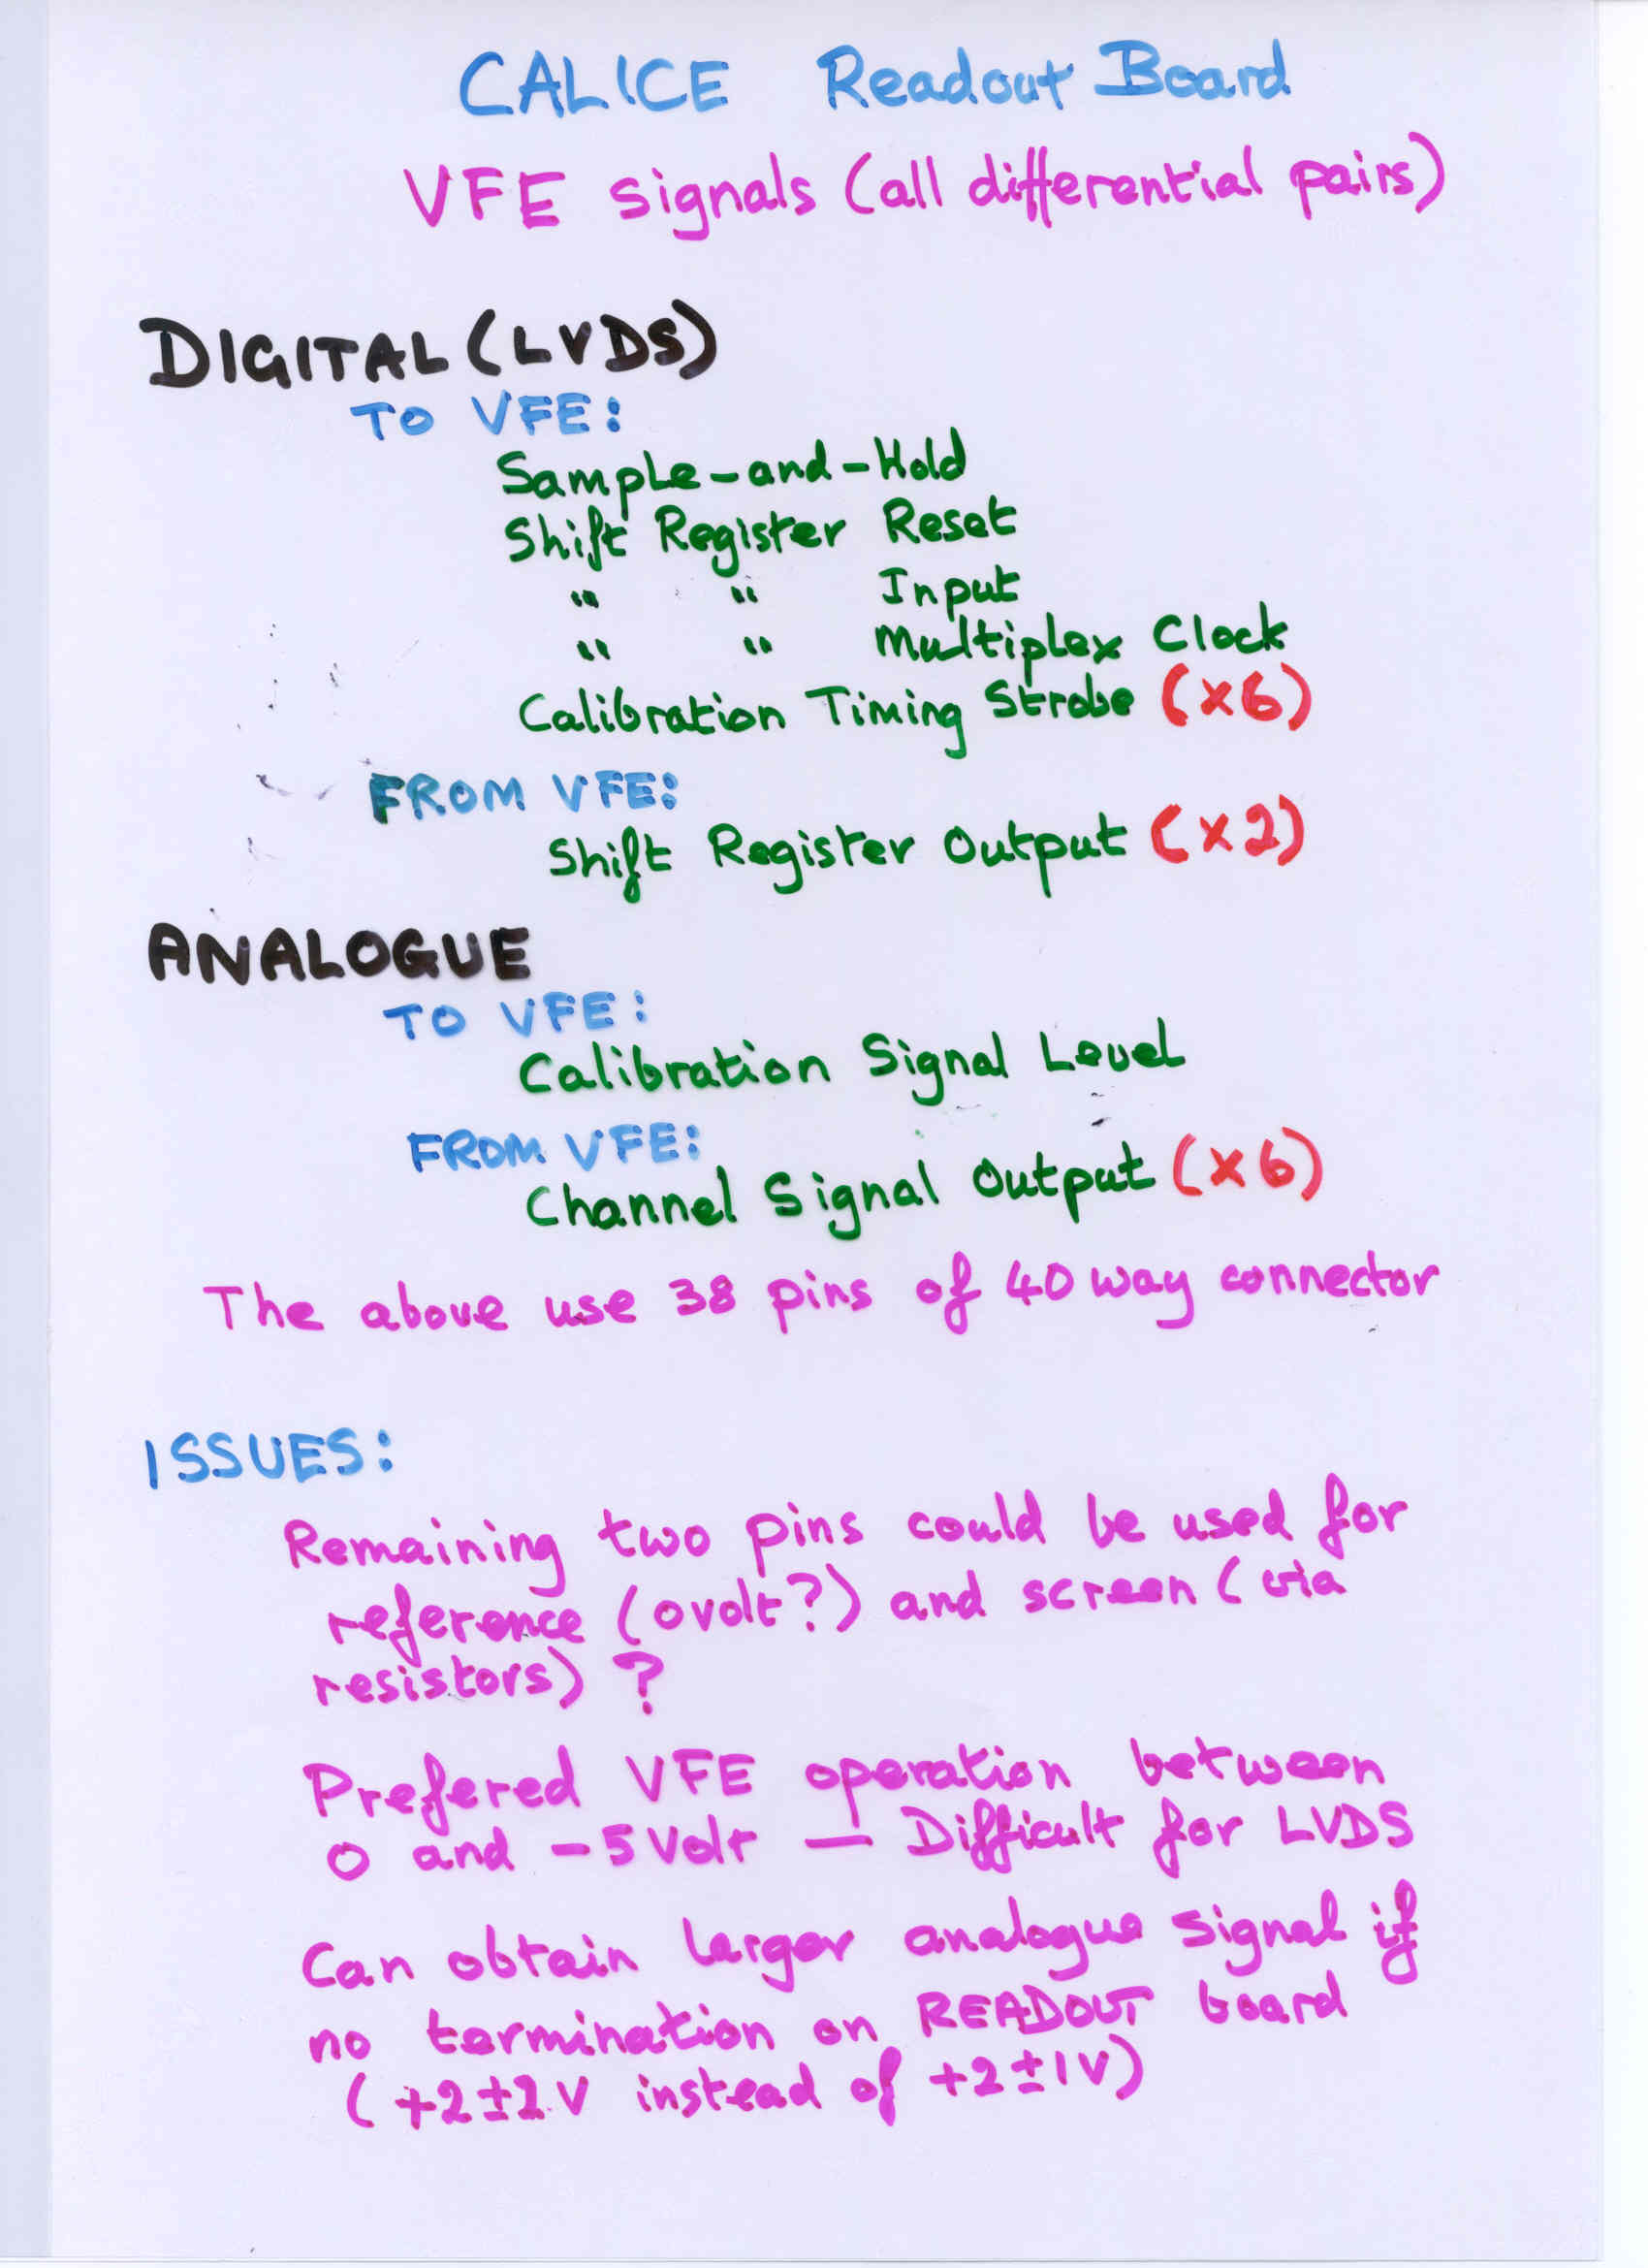 CALICE Readout Board
VFE signals (all differential pairs)
DIGITAL (LVDS)
TO VFE:
Sample-and-Hold
Shift Register Reset
" " Input
" " Multiplex Clock
Calibration Timing Strobe (×6)
FROM VFE:
Shift Register Output (×2)
ANALOGUE
TO VFE:
Calibration Signal Level
FROM VFE:
Channel Signal Output (×6)
The above use 38 pins of 40 way connector
ISSUES:
Remaining two pins could be used for
reference (0volt?) and screen (via
resistors) ?
Prefered VFE operation between
0 and -5Volt — Difficult for LVDS
Can obtain larger analogue signal if
no termination on READOUT board
(+2±2V instead of +2±1V)